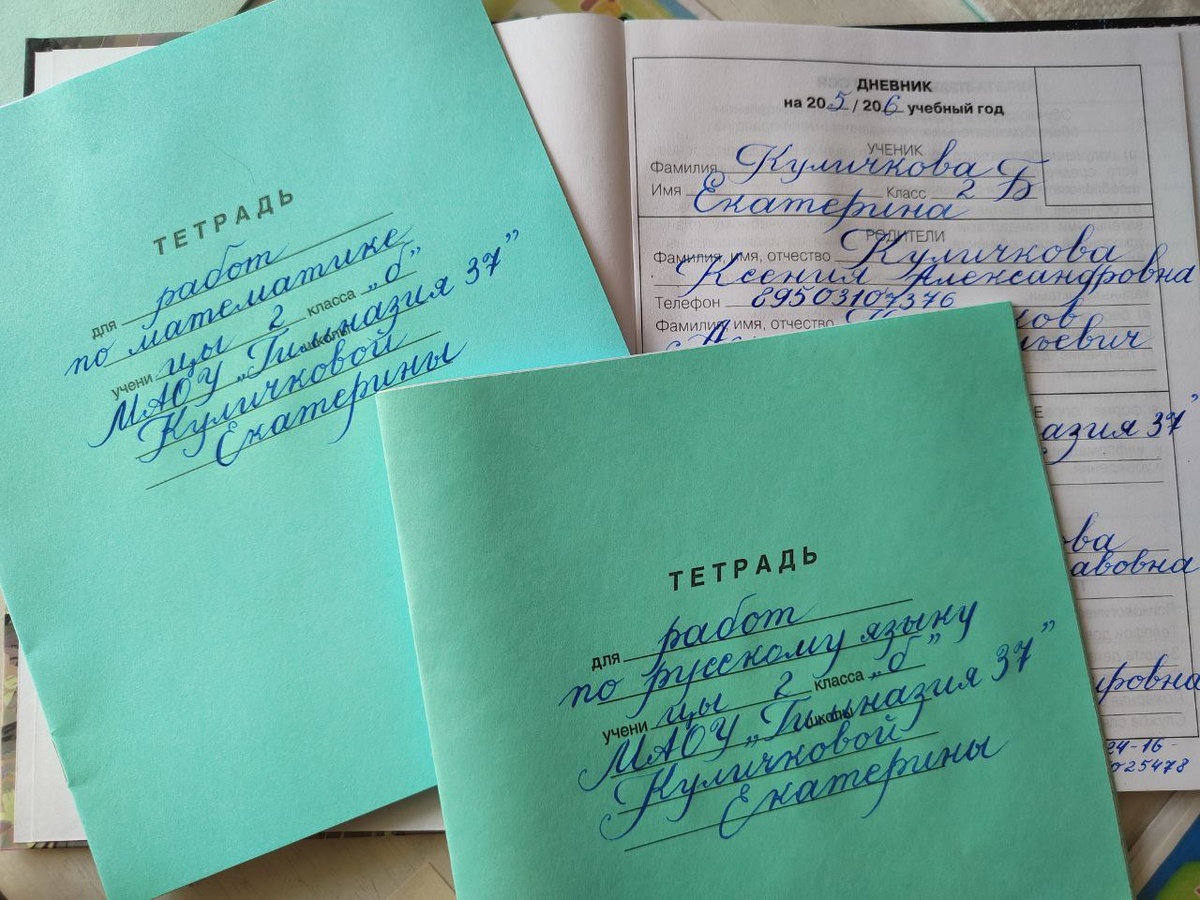 ТЕТРАДЬ
для работ
по математике
учени цы 2 класса „б”
МАОУ „Гимназия 37”
школы
Куличковой
Екатерины
ДНЕВНИК
на 20 5 / 20 6 учебный год
УЧЕНИК
Фамилия Куличкова
Имя Екатерина Класс 2 Б
РОДИТЕЛИ
Фамилия, имя, отчество Куличкова
Ксения Александровна
Телефон 89503107376
Фамилия, имя, отчество
ьевич
азия 37”
ова
авовна
ировна
24-16-
025478
ТЕТРАДЬ
для работ
по русскому языку
учени цы 2 класса „б”
МАОУ „Гимназия 37”
школы
Куличковой
Екатерины